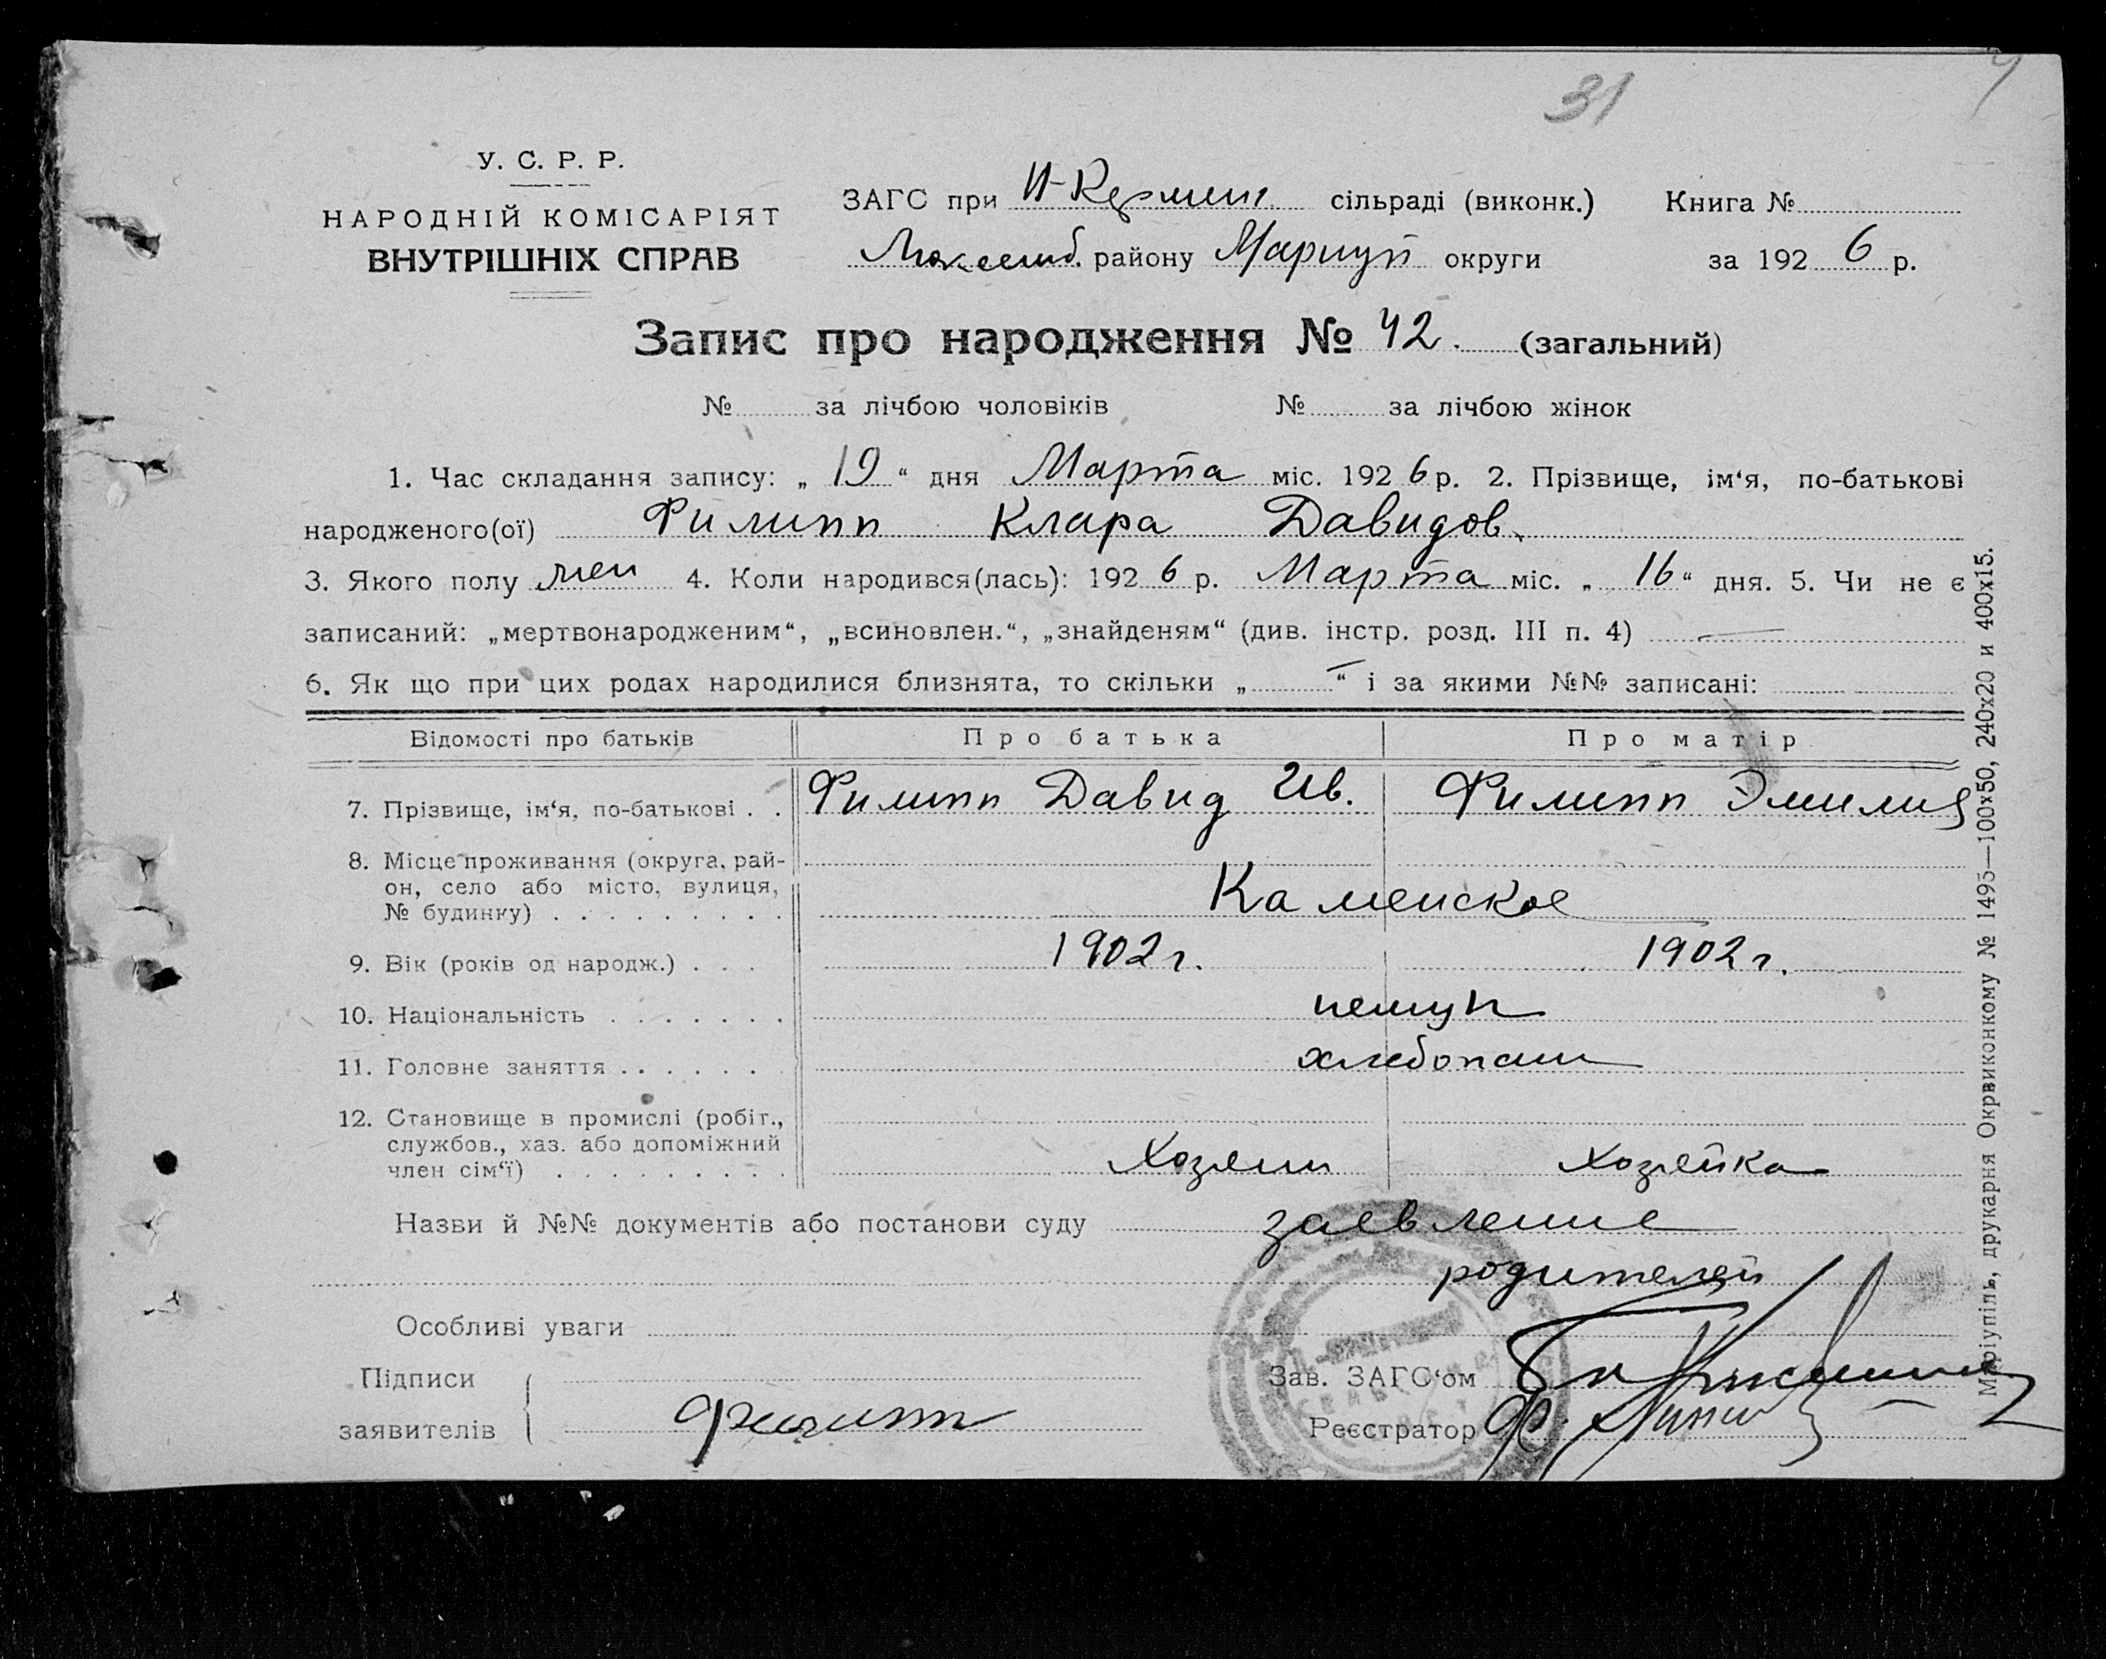 31
У. С. Р. Р.
НАРОДНІЙ КОМІСАРІЯТ
ВНУТРІШНІХ СПРАВ
ЗАГС при сільраді (виконк.) Книга №
району Мариуп округи за 192 6 р.
Запис про народження № 42. (загальний)
№ за лічбою чоловіків № за лічбою жінок
1. Час складання запису: „ 19 “ дня Марта міс. 192 6 р. 2. Прізвище, ім‘я, по-батькові
народженого(ої) Филипп Клара Давидов.
3. Якого полу жен 4. Коли народився(лась): 192 6 р. Марта міс. „ 16 “ дня. 5. Чи не є
записаний: „мертвонародженим“, „всиновлен.“, „знайденям“ (див. інстр. розд. III п. 4) —
6. Як що при цих родах народилися близнята, то скільки „ — “ і за якими №№ записані:
Відомості про батьків Про батька Про матір
7. Прізвище, ім‘я, по-батькові . . Филипп Давид Ив. Филипп Эмилия
8. Місце проживання (округа, рай-
он, село або місто, вулиця,
№ будинку) . . . . . . . . . Каменское
9. Вік (років од народж.) . . . 1902 г. 1902 г.
10. Національність . . . . . . . немцы
11. Головне заняття . . . . . . . хлебопаш
12. Становище в промислі (робіт.,
службов., хаз. або допоміжний
член сім‘ї) . . . . . . . . . Хозяин Хозяйка
Назви й №№ документів або постанови суду заевление
родителей
Особливі уваги
Підписи
заявителів Филипп
Зав. ЗАГС‘ом
Реєстратор Ф.
Маріупіль, друкарня Окрвиконкому № 1495—100х50, 240х20 и 400х15.